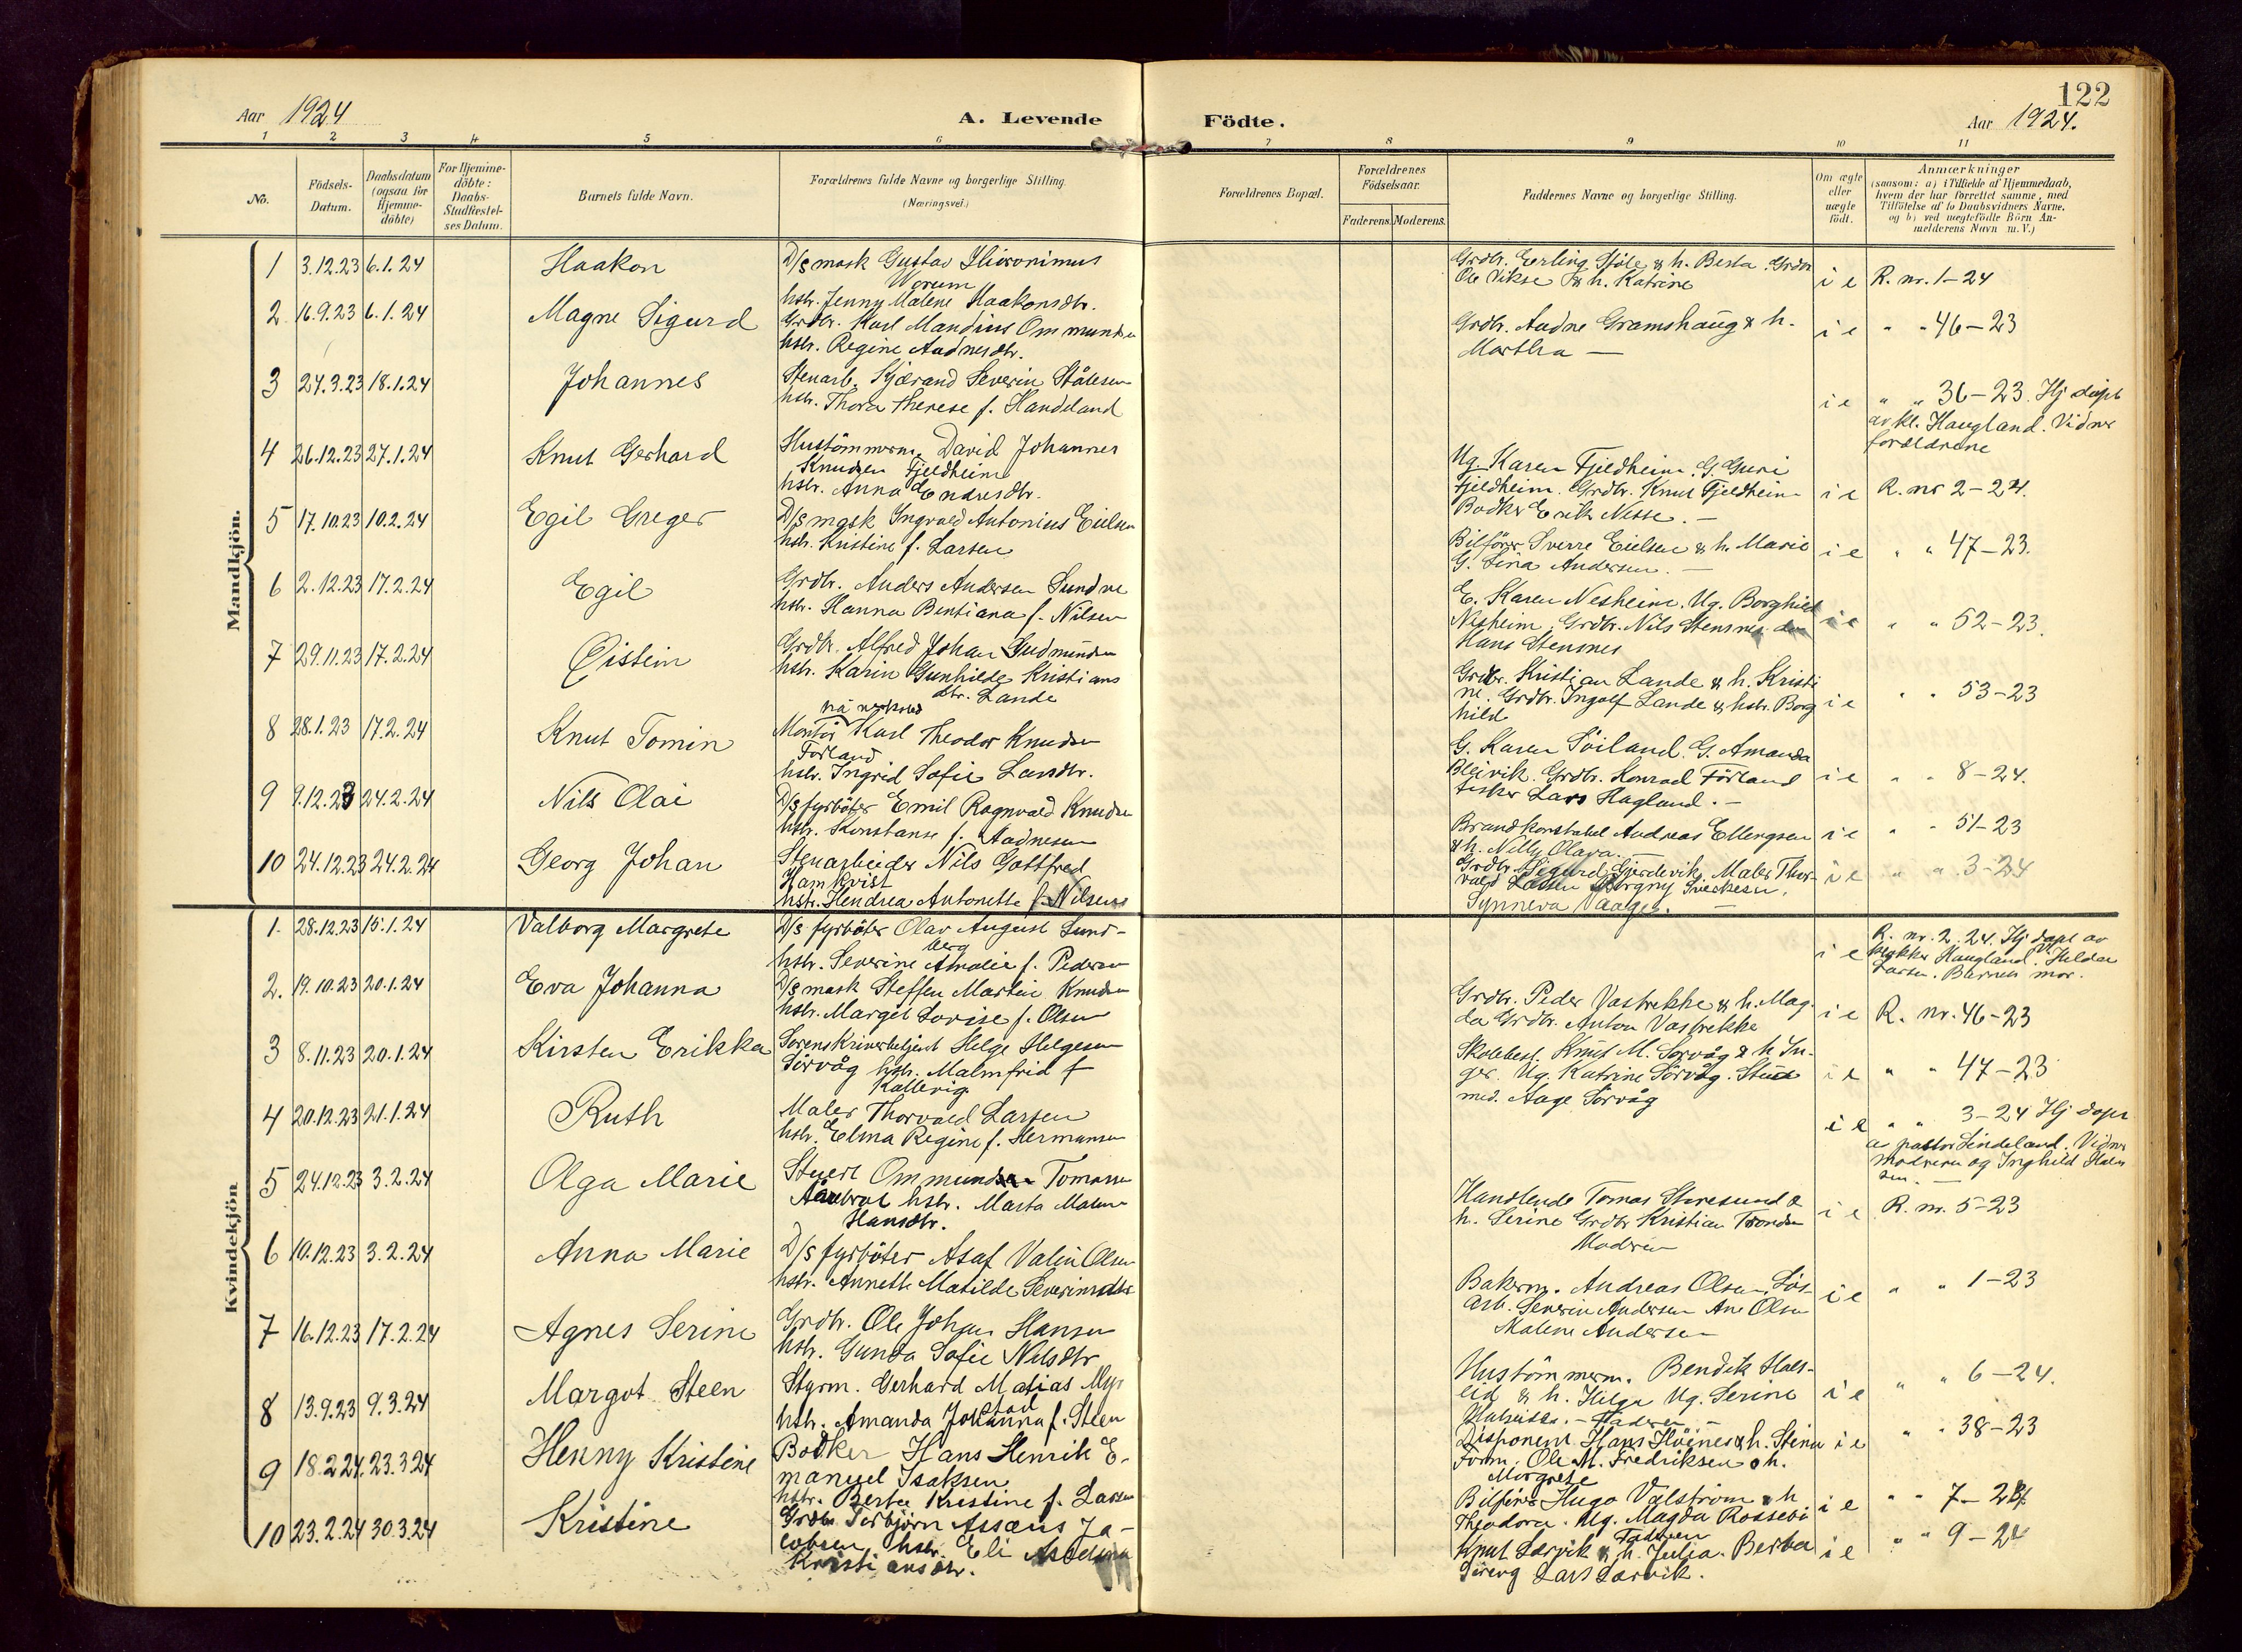 122
Aar 1924
A. Levende
Födte.
Aar 1924.
1 2 3 4 5 6 7 8 9 10 11
No.
Födsels-
Datum.
Daabsdatum
(ogsaa for
Hjemme-
döbte)
For Hjemme-
döbte:
Daabs-
Stadfæstel-
ses Datum.
Barnets fulde Navn.
Forældrenes fulde Navne og borgerlige Stilling.
(Næringsvei.)
Forældrenes Bopæl.
Forældrenes
Födselsaar.
Faderens. Moderens.
Faddernes Navne og borgerlige Stilling.
Om ægte
eller
uægte
födt.
Anmærkninger
(saasom: a) i Tilfælde af Hjemmedaab,
hvem der har forrettet samme, med
Tilföielse af to Daabsvidners Navne,
og b) ved uægtefödte Börn An-
melderens Navn m. V.)
Mandkjön.
1 3.12.23 6.1.24 Haakon
D/s mask Gustav Hieronimus
Worum
hstr. Jenny Malene Haakonsdtr.
Grdbr. Erling Sjöle & h. Berta. Grdbr
Ole Vikse & h. Katrine
i e R. nr. 1-24
2 16.9.23 6.1.24 Magne Sigurd
Grdbr. Karl Mandius Ommundsen
hstr. Regine Aadnesdtr.
Grdbr. Audne Gramshaug & h.
Martha —
i e " " 46-23
3 24.3.23 18.1.24 Johannes
Stenarb. Sjærand Severin Stålesen
hstr. Thora Therese f. Handeland
i e " " 36-23. Hj döpt
av kl. Haugland. Vidner
forældrene
4 26.12.23 27.1.24 Knut Gerhard
Hustömmerm. David Johannes
Knudsen Fjeldheim
hstr. Anna Endresdtr.
Ug. Karen Fjeldheim. G. Guri
Fjeldheim. Grdbr. Knut Fjeldheim
Bödker Erik Nesse. —
i e R. nr 2-24.
5 17.10.23 10.2.24 Egil Greger
D/s mask Ingvald Antonius Eielsen
hstr. Kristine f. Larsen
Bilförer Sverre Eielsen & h. Marie
G. Lina Andersen. —
i e " " 47-23.
6 2.12.23 17.2.24 Egil
Grdbr. Anders Andersen Sundne
hstr. Hanna Bentiana f. Nilsen
E. Karen Nesheim. Ug. Borghild
Nesheim. Grdbr. Nils Stensnes
Hans Stensnes
i e " " 52-23.
7 29.11.23 17.2.24 Øistein
Grdbr. Alfred Johan Gudmundsen
hstr. Karin Gunhilde Kristians
dtr. Lande
Grdbr. Kristian Lande & h. Kristi
ne. Grdbr. Ingolf Lande & hstr. Borg
hild
i e " " 53-23
8 28.1.23 17.2.24 Knut Tomin
Montör Karl Theodor Knudsen
Forland
hstr. Ingrid Sofie Larsdtr.
G. Karen Söiland. G. Amanda
Bleivik. Grdbr. Konrad Förland
fisker Lars Hagland. —
i e " " 8-24.
9 9.12.23 24.2.24 Nils Olai
D/s fyrböter Emil Ragnvald Knudsen
hstr. Konstanse f. Aadnesen
Brandkonstabel Andreas Ellengsen
& h. Nelly Olava. —
i e " " 51-23
10 24.12.23 24.2.24 Georg Johan
Stenarbeider Nils Gottfred
Hamkvist
hstr. Hendrea Antonette f. Nilsen
Grdbr. Sigurd Gjerdevik. Maler Thor-
vald Larsen Borgny Sverkesen.
Synneva Vaage. —
i e " " 3-24
Kvindekjön
1. 28.12.23 15.1.24 Valborg Margrete
D/s fyrböter Olav August Sund-
berg
hstr. Severine Amalie f. Pedersen
i e R. nr. 2. 24. Hj döpt av
klokker Haugland. Hilda
Larsen. Barnets mor.
2. 19.10.23 20.1.24 Eva Johanna
D/s mask Steffen Martin Knudsen
hstr. Margit Lovise f. Olsen
Grdbr. Peder Vastrekke & h. Mag-
da Grdbr. Anton Vastrekke
i e R. nr. 46-23
3 8.11.23 20.1.24 Kirsten Erikka
Sorenskriverbetjent Helge Helgesen
Sörvåg hstr. Malmfrid f
Kallevig
Skolebest. Knut M. Sörvåg & h In-
ger. Ug. Katrine Sörvåg. Stud
med. Aage Sörvåg
i e " " 47-23
4 20.12.23 21.1.24 Ruth
Maler Thorvald Larsen
hstr. Elma Regine f. Hermansen
i e " " 3-24 Hj döpt
av pastor Lindeland. Vidner
moderen og Inghild Halv
sen. —
5 24.12.23 3.2.24 Olga Marie
Stuert Ommund Tomassen
hstr. Marta Malene
Hansdtr.
Handlende Tomas Staresund &
h. Serine Grdbr Kristian Trondsen
Moderen
i e R. nr. 5-23
6 10.12.23 3.2.24 Anna Marie
D/s fyrböter Asaf Valin Olsen
hstr. Annette Matilde Severinsdtr
Bakerm. Andreas Olsen. Lös-
arb. Severin Andersen Ane Olsen
Malene Andersen
i e " " 1-23
7 16.12.23 17.2.24 Agnes Serine
Grdbr. Ole Johan Hansen
hstr. Gunda Sofie Nilsdtr
Hustömmerm. Bendik Hals-
eid & h. Helga Ug. Serine
Faderen —
i e " " 6-24.
8 13.9.23 9.3.24 Margot Steen
Styrm. Gerhard Matias Myr
stad
hstr. Amanda Johanna f. Steen
Disponent Hans Höines & h. Stina
Form. Ole M. Fredriksen & h.
Margrete
i e " " 38-23
9 18.2.24. 23.3.24 Henny Kristine
Bødker Hans Henrik E-
manuel Isaksen
hstr. Berta Kristine f. Larsen
Bilförer Hugo Valström & h
Theodora. Ug. Magda Rossebö
Faderen
i e " " 7-24.
10 23.2.24 30.3.24 Kristine
Grdbr Torbjörn Assæus Ja-
cobsen hstr. Eli
Kristiansdtr.
Knut Lervik & h. Julia. Berta
Sörevg Lars Lervik.
i e " " 9-24